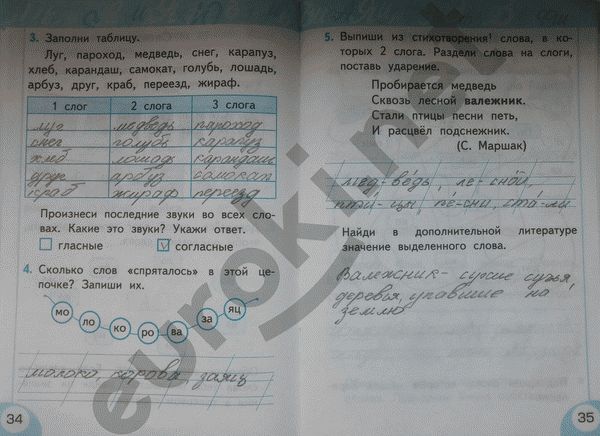 3. Заполни таблицу.
Луг, пароход, медведь, снег, карапуз,
хлеб, карандаш, самокат, голубь, лошадь,
арбуз, друг, краб, переезд, жираф.
1 слог 2 слога 3 слога
луг медведь пароход
снег голубь карапуз
хлеб лошадь карандаш
друг арбуз самокат
краб жираф переезд
Произнеси последние звуки во всех сло-
вах. Какие это звуки? Укажи ответ.
гласные согласные
4. Сколько слов «спряталось» в этой це-
почке? Запиши их.
мо ло ко ро ва за яц
молоко, корова, заяц
34
5. Выпиши из стихотворения слова, в ко-
торых 2 слога. Раздели слова на слоги,
поставь ударение.
Пробирается медведь
Сквозь лесной валежник.
Стали птицы песни петь,
И расцвёл подснежник.
(С. Маршак)
мед-ве́дь, ле-сно́й,
пти́-цы, пе́-сни, ста́-ли
Найди в дополнительной литературе
значение выделенного слова.
Валежник - сухие сучья,
деревья, упавшие на
землю
35
eurokinet